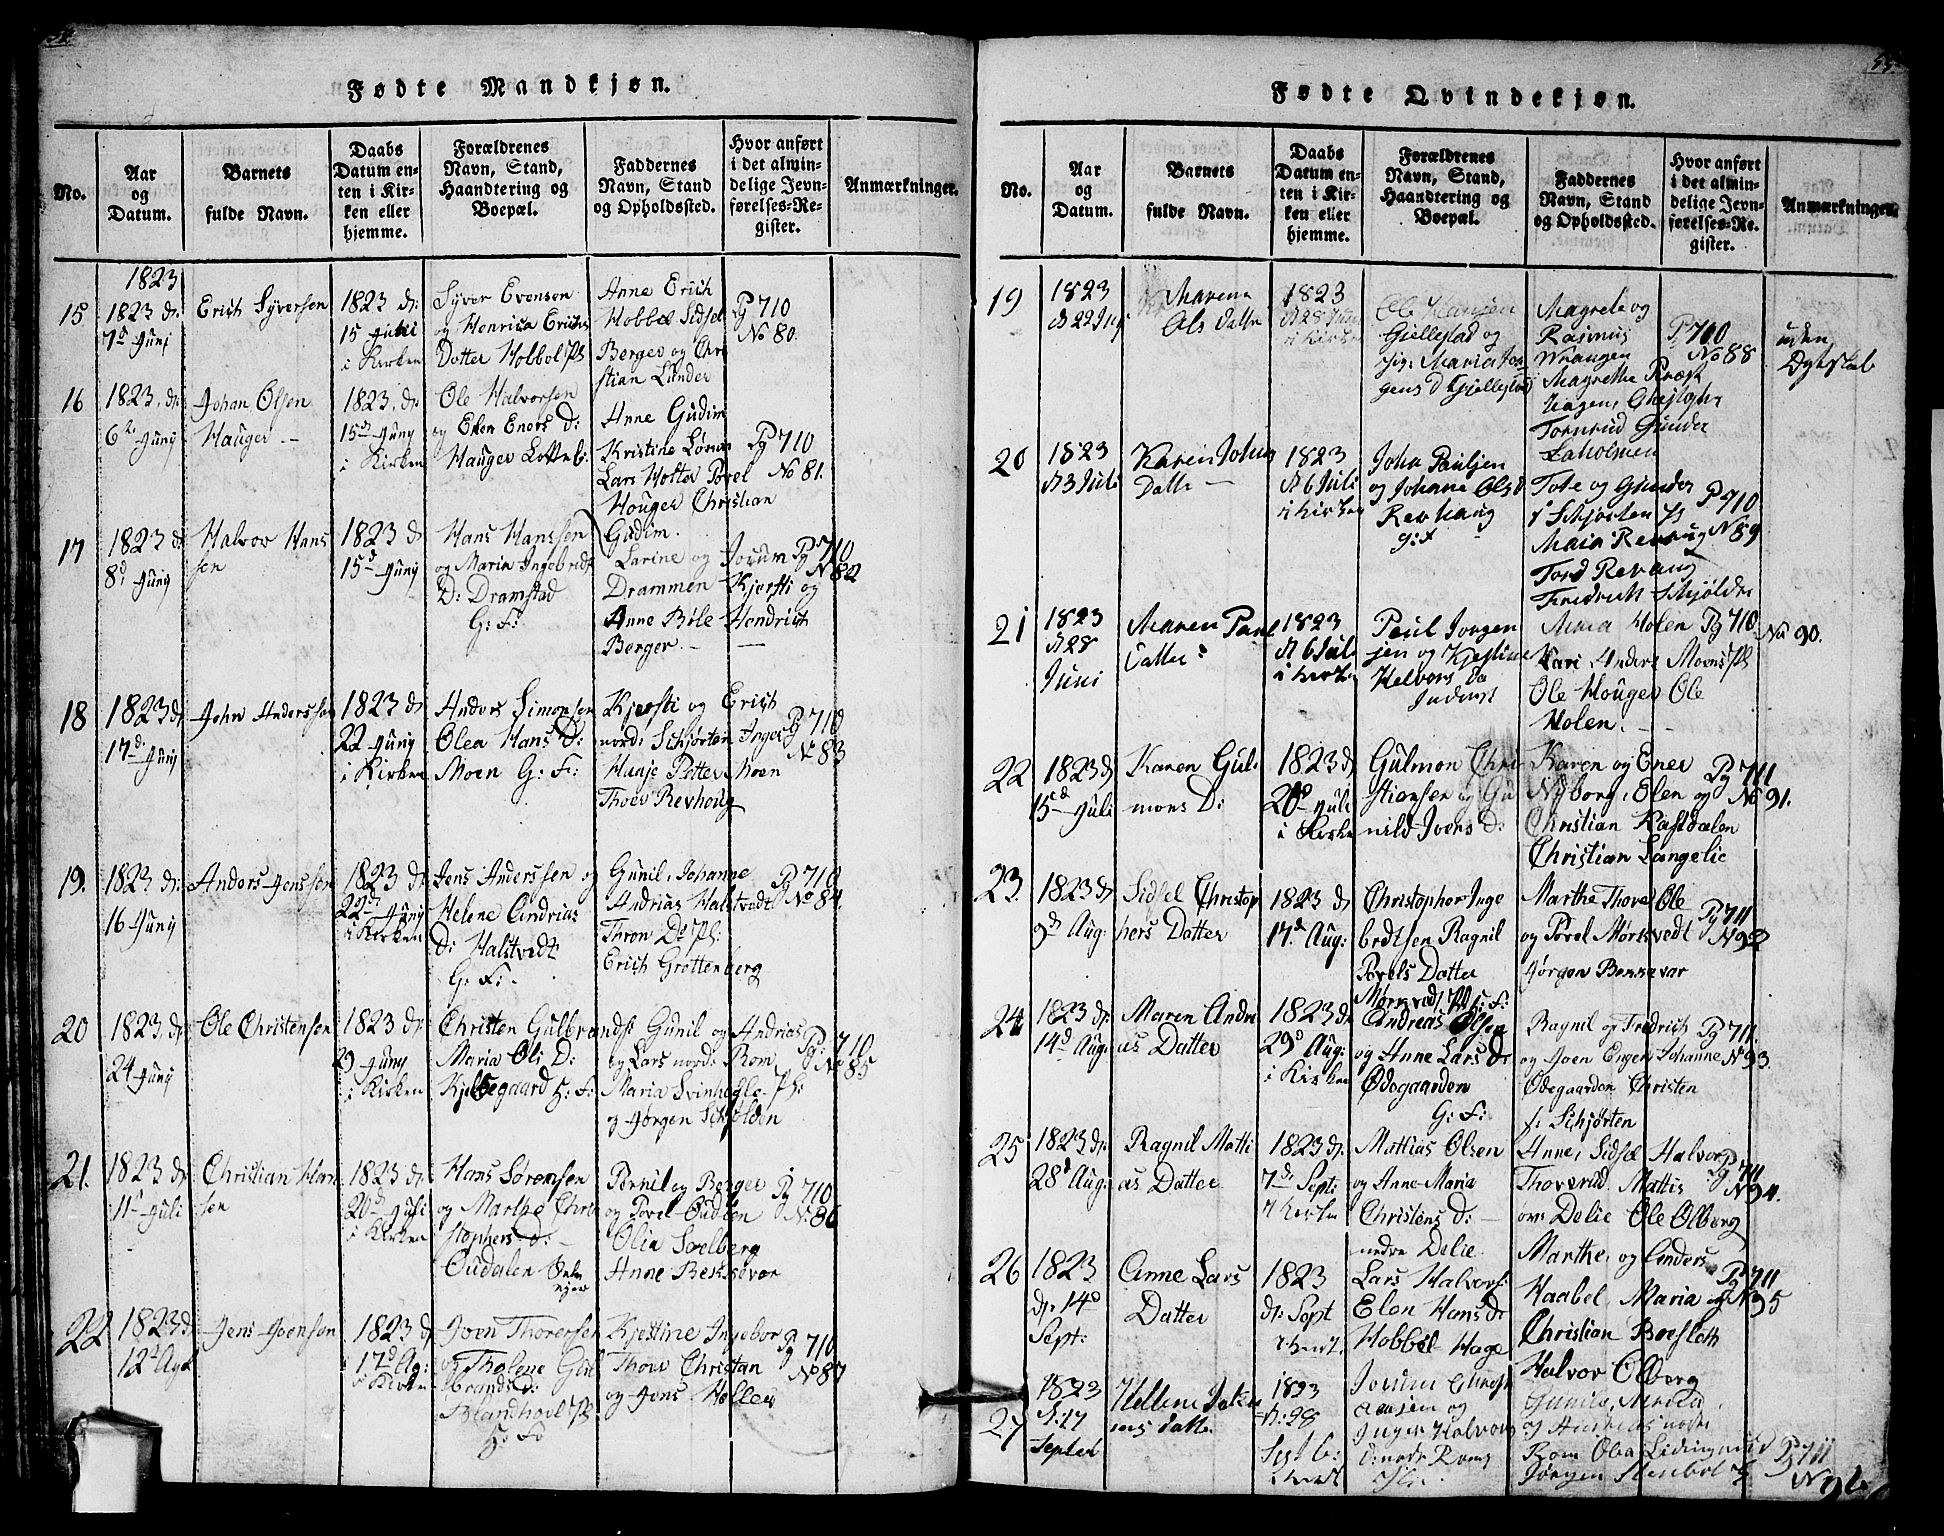 54
Fødte Mandkjøn.
No.
Aar
og
Datum.
Barnets
fulde Navn.
Daabs
Datum en-
ten i Kir-
ken eller
hjemme.
Forældrenes
Navn, Stand,
Haandtering og
Boepæl.
Faddernes
Navn, Stand
og Opholdssted.
Hvor anført
i det almin-
delige Jevn-
førelses-Re-
gister.
Anmærkninger.
1823
15
1823 d:
7d Junj
Erich Syversen
1823 d:
15 Juni
i Kirken
Syver Evensen
og Henrica Erichs
Datter Hobbøl Pl
Anne Erich
Hobbøl Sidsel
Berger og Chri
stian Lunder
Pg 710
No 80.
16
1823. d:
6d Juny
Johan Olsen
Hauger
1823. d:
15d Juny
i Kirken
Ole Halvorsen
og Elen Eners D:
Hauger
Anne Gudim
Kristine
Lars Holter Povel
Houger Christian
Gudim.
Pg 710
No 81.
17
1823 d
8d Juny
Halvor Hans
sen
1823 d
15d Juny
Hans Hanssen
og Maria Ingebrids
D: Dramstad
G: F:
Larine og Jorum
Drammen Kjersti og
Anne Bøle Hendrich
Berger.
Pg 710
N 82
18
1823 d:
17d: Juny
John Anderssen
1823 d
22 Juny
i Kirken
Anders Simonsen
Olea Hans D:
Moen G: F:
Kjersti og Erich
nord: Schjørten Inger
Hunje Petter Moen
Thoer Revhoug
Pg 710
N 83
19.
1823 d:
16 Juny
Anders Jenssen
1823 d:
22d Juny
i Kirken
Jens Anderssen og
Helene Andrias
D: Halstvedt
G: F:
Gunil, Johanne
Andrias Halstvedt
Thron Do Pl:
Erich Grottenberg
Pg 710
No 84.
20
1823. d:
24 Juny
Ole Christensen
1823 d:
29 Juny
i Kirken
Christen Gulbrands:
Maria Oli D:
Gunil og Andrias
og Lars nord: Rom
Maria Svinhøgle Pl:
og Jørgen Schjolden
Pg: 710
No 85
21.
1823 d:
11d Juli
Christian Han
sen
1823 d:
20d Juli
i Kirken
Hans Sørensen
og Marthe Chri
stophers d:
Oudalen
Pernil og Berger
og Povel Oudalen
Olia Soelberg
Anne Bekkevar
Pg 710
N: 86
22
1823 d
12d Agst
Jens Joensen
1823 d
17d Ag:
i Kirken
Joen Thorersen
og Tholene Gul
brands d:
Kjestine Ingebor
Thoer Christian
og Jens Holler
Pg 710
No 87
55.
Fødte Qvindekjøn.
No.
Aar
og
Datum.
Barnets
fulde Navn.
Daabs
Datum en-
ten i Kir-
ken eller
hjemme.
Forældrenes
Navn, Stand,
Haandtering og
Boepæl.
Faddernes
Navn, Stand
og Opholdssted.
Hvor anført
i det almin-
delige Jevn-
førelses-Re-
gister.
Anmærkninger.
19
1823
d 22 Juny
Marena
Ols Datter
1823
d 28 Juni
i Kirken
Ole Hansen
Gjellestad og
Maria Jør
gens D Gjellestad
Magrete og
Rasmus
Wraugen
Magrethe Præst
Tornrud Gunder
Laholmen
Pg 710
No 88
uden
20
1823
d 3 Juli
Karen Johns
Datter
1823
d 6 Juli
i Kirken
John Paulsen
og Johane Ols d
Revhaug
G: F
Tore og Gunder
Schjørten Pl
Maria Revhaug
Tord Revhaug
Fredrich Schjølden
Pg 710
N 89
21
1823
d 28
Juni
Maren Pauls
Datter
1823
d 6 Juli
i Kirken
Paul Jørgen
sen og Kjestine
Helvors Da
Maria Holen
Kari Anders Moens Pl
Ole Houger Ole
Holen.
Pg 710
No 90.
22
1823 d
15de Juli
Karen Gul
mons D:
1823 d
20d Juli
i Kirken
Gulmon Chri
stiansen og Gu
nild Ivers D:
Karen og Ener
Nyborg, Elen og
Christian Kastdalen
Christian Langelie
Pg 711
No 91.
23.
1823 d:
9d Aug:
Sidsel Christop
hers Datter
1823 d
17d Aug:
Christopher Inge
bretsen Ragnil
Povels Datter
Mørkvedt Pl: G: F:
Marthe Thore Ole
og Povel Mørkvedt
Jørgen Bekkevar
Pg 711
N 92
24
1823 d:
14d Aug:
Maren Andre
as Datter
1823 d:
29d Aug:
i Kirken
Andreas Olsen
og Anne Lars D:
Ødegaarden
G: F:
Ragnil og Fredrich
og Joen Enger Johanne
Ødegaarden Christen
Schjørten
Pg 711.
N 93.
25
1823 d:
28d Aug:
Ragnil Matti
as Datter
1823 d:
7d Sept:
i Kirken
Mattias Olsen
og Anne Maria
Christens d:
nedre Delie
Anne, Sidsel Halvor
Thovsrud Mattis
Delie Ole Olberg
Pg 711
N 94.
26
1823
d: 14d
Sept:
Anne Lars
Datter
1823
d: Sept
Lars Halvors:
Elen Hans D:
Hobbøl Hage
Marthe, og Anders
Haabel, Maria og
Christian Boesleth
Halvor Olberg
Pg 711
N 95
27
1823
d: 17
Septeb
Hellene
Datter
1823
d: 28
Septb:
Inger Halvors
D:
Gunild,
og Andreas nordre
Rom Olea
Jørgen Stenbøl
Pg 711
N 96